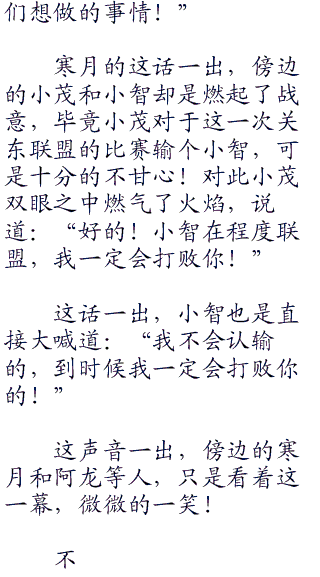 们想做的事情！”
寒月的这话一出，傍边
的小茂和小智却是燃起了战
意，毕竟小茂对于这一次关
东联盟的比赛输个小智，可
是十分的不甘心！对此小茂
双眼之中燃气了火焰，说
道：“好的！小智在程度联
盟，我一定会打败你！”
这话一出，小智也是直
接大喊道：“我不会认输
的，到时候我一定会打败你
的！”
这声音一出，傍边的寒
月和阿龙等人，只是看着这
一幕，微微的一笑！
不